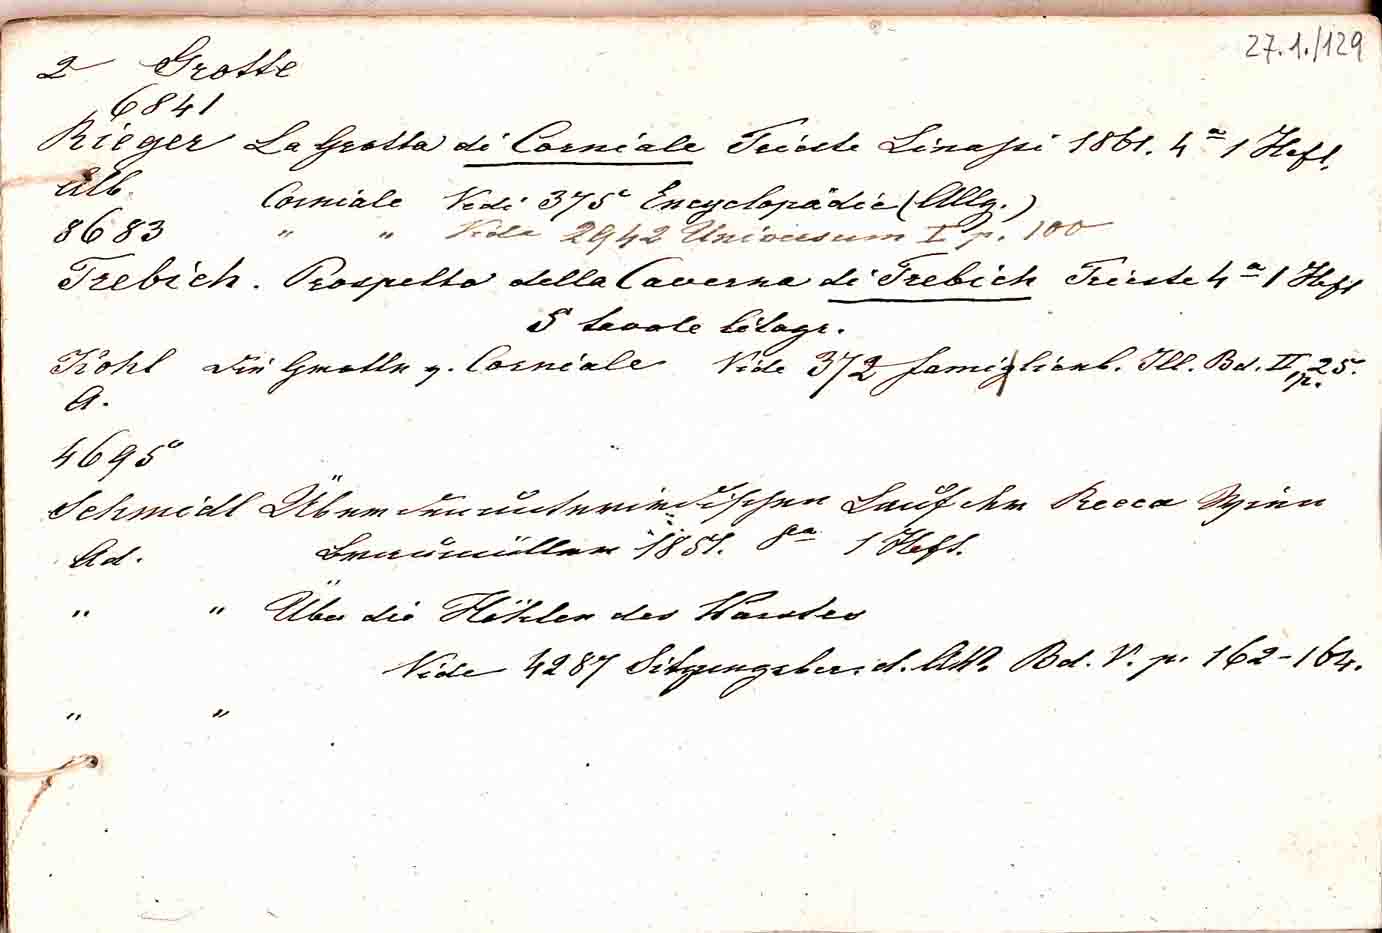 27.1./129
2 Grotte
6841
Rieger La Grotta di Corniale Trieste Linassi 1861. 4ª 1 Heft
Alb. Corniale Vidi 375ª Encyclopädie (Allg.)
8683 " " Vide 2942 Universum I p. 100
Trebich. Prospetto della Caverna di Trebich Trieste 4ª 1 Heft
5 tavole litogr.
Kohl Die Grotte v. Corniale Vide 372 familienb. Ill. Bd. II p. 25.
A.
4695ª
Schmidl Über den unterirdischen Lauf der Recca Wien
Ad. Braumüller 1851. 8ª 1 Heft.
" " Über die Höhlen des Karstes
Vide 4287 Sitzungsber. d. Ak. Bd. V. p. 162-164.
" "